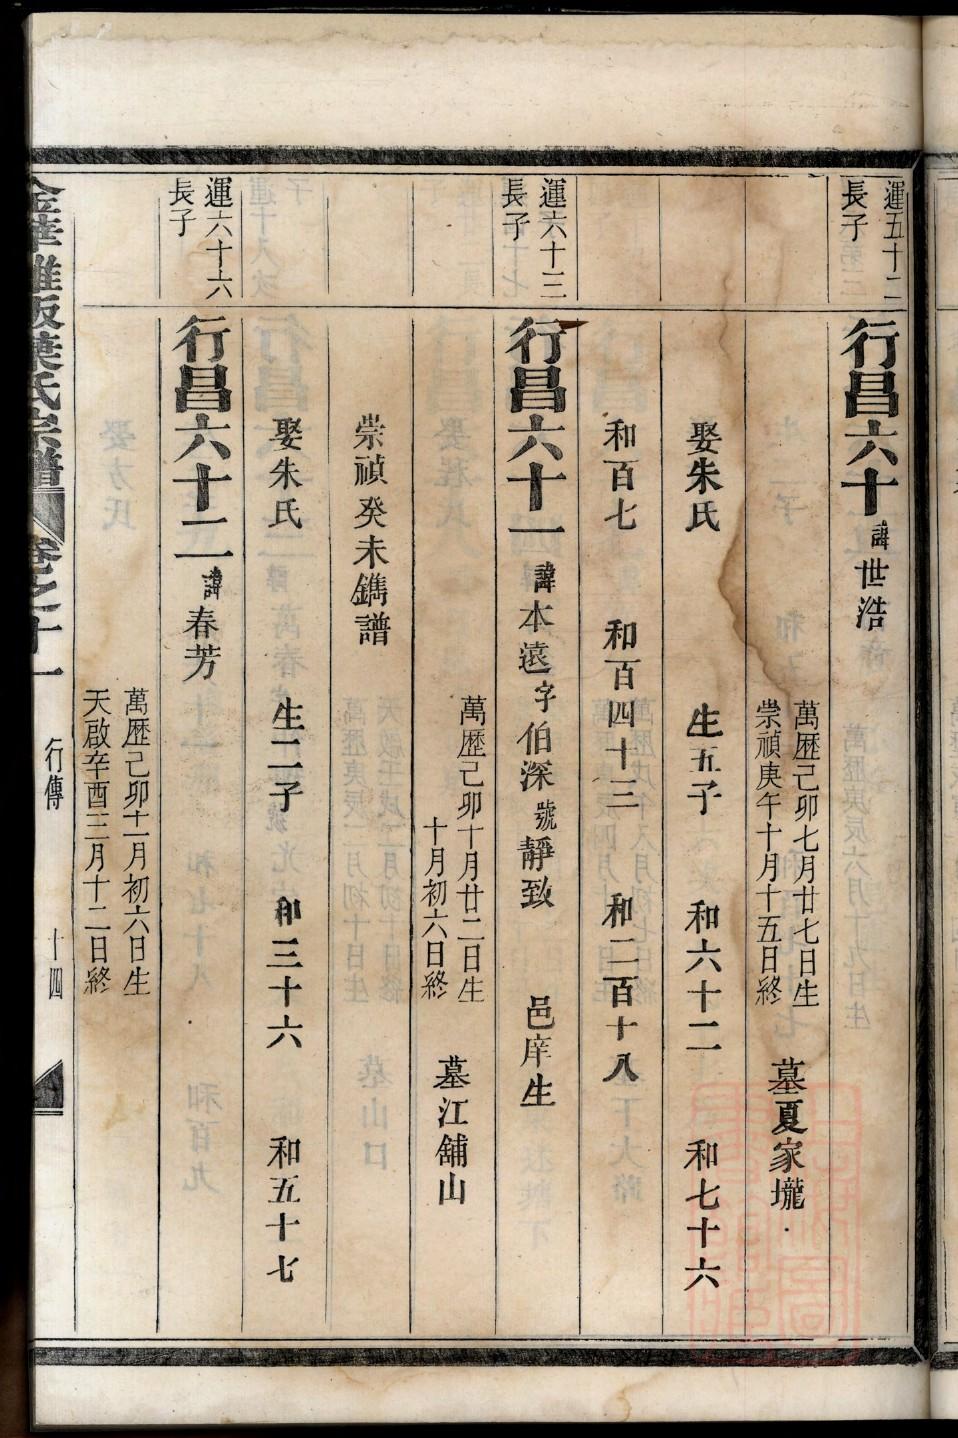 運五十二
長子
行昌六十
諱世浩
萬歴己卯七月廿七日生
崇禎庚午十月十五日終
墓夏家壠
娶朱氏 生五子 和六十二 和七十六
和百七 和百四十三 和二百十八
運六十三
長子
行昌六十一
諱本遠 字伯深 號靜致 邑庠生
萬歴己卯十月廿二日生
十月初六日終
墓江舖山
崇禎癸未鐫譜
娶朱氏 生二子 和三十六 和五十七
運六十六
長子
行昌六十二
諱春芳
萬歴己卯十一月初六日生
天啟辛酉三月十二日終
葉氏宗譜
卷之十一
行傳
十四